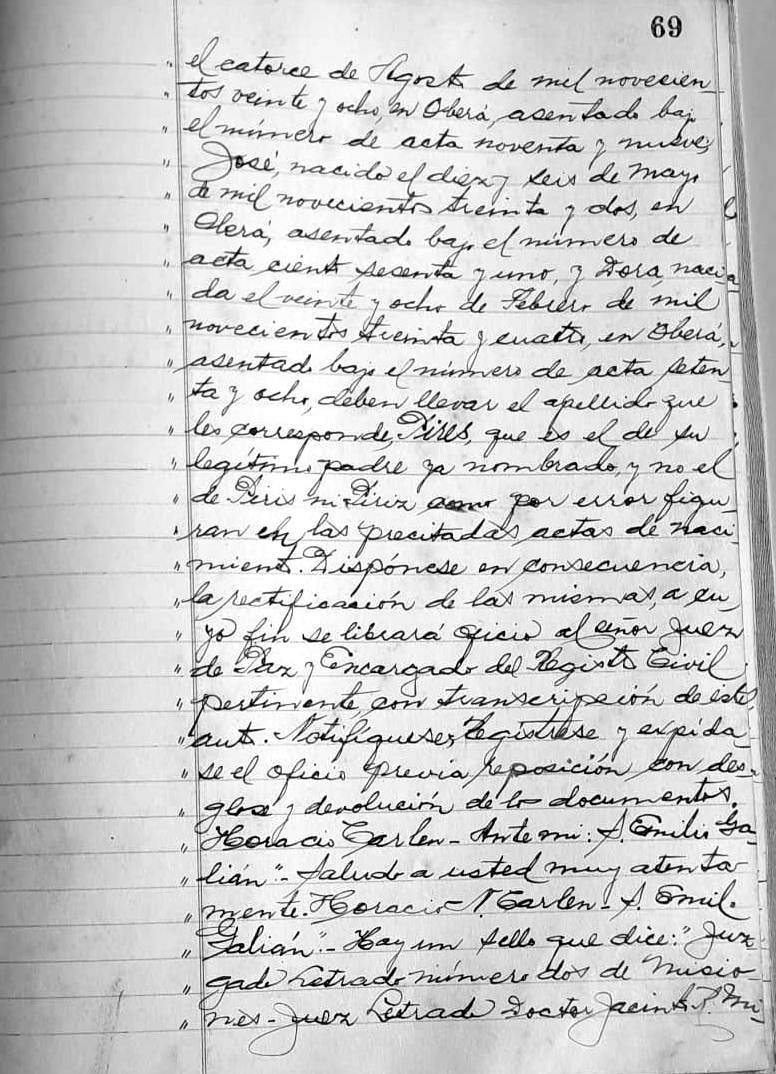 69
" el catorce de Agosto de mil novecien-
" tos veinte y ocho, en Oberá, asentado bajo
" el número de acta noventa y nueve;
" José, nacido el diez y seis de Mayo
" de mil novecientos treinta y dos, en
" Oberá, asentado bajo el número de
" acta ciento sesenta y uno, y Dora, naci-
" da el veinte y ocho de Febrero de mil
" novecientos treinta y cuatro, en Oberá,
" asentado bajo el número de acta seten
" ta y ocho, deben llevar el apellido que
" les corresponde, Pires, que es el de su
" legítimo padre ya nombrado, y no el
" de Piris ni Piriz como por error figu-
" ran en las precitadas actas de naci-
" miento. Dispónese en consecuencia,
" la rectificación de las mismas, a cu-
" yo fin se librará oficio al señor Juez
" de Paz y Encargado del Registro Civil
" pertinente, con transcripción de este
" auto. Notifíquese, Regístrese y expída
" se el oficio previa reposición con des-
" glose y devolución de los documentos.
" Horacio Carlen - Ante mi: S. Emilio Ga-
" lián" - Saludo a usted muy atenta
" mente. Horacio N. Carlen - S. Emil.
" Galián" - Hay un sello que dice: "Juz
" gado Letrado número dos de Misio
" nes - Juez Letrado Doctor Jacinto R. Mi-